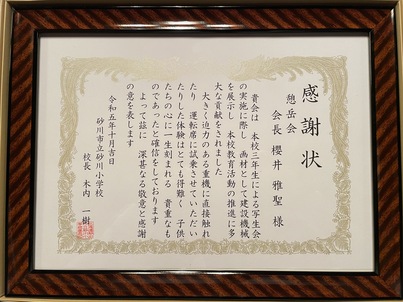 感謝状
憩岳会
会長 櫻井 雅聖 様
貴会は 本校三年生による写生会
の実施に際し 画材として建設機械
を展示し 本校教育活動の推進に多
大な貢献をされました
大きく迫力のある重機に直接触れ
たり 運転席に試乗させていただい
たりした体験はとても得難く 子供
たちの心に一生刻まれる 貴重なも
のであったと確信をしております
よって茲に 深甚なる敬意と感謝
の意を表します
令和五年十月吉日
砂川市立砂川小学校
校長 木内 一樹